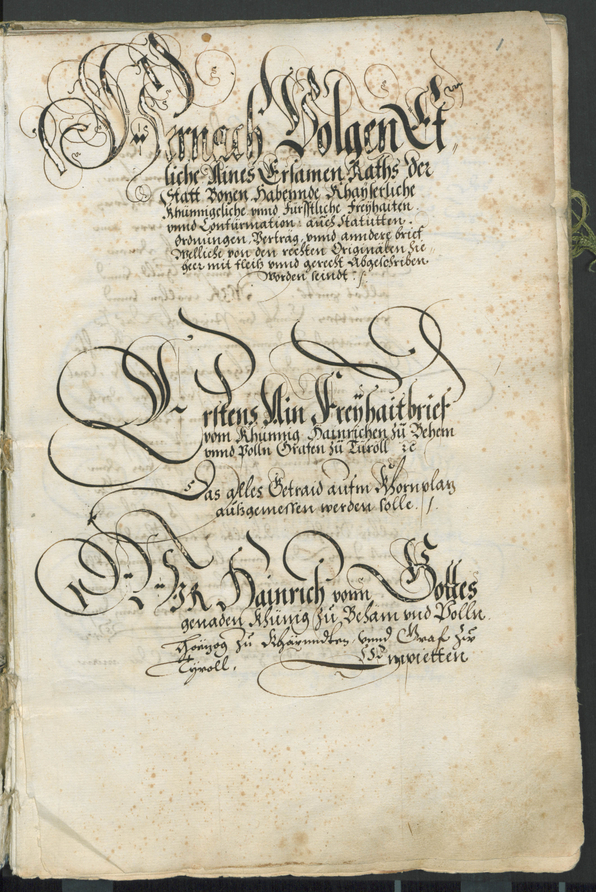 1
Hernach Volgen Et„
liche Aines Ersamen Raths der
Statt Bozen Habennde Khayserliche
Khunnigeliche vnnd Fürstliche Freyhaiten.
vnnd Confirmation auch Statutten.
Ordnungen Vertrag vnnd anndere brief
Welliche von den rechten Originalen hie„
geer mit fleis vnnd gerecht Abgeschriben
Worden seindt
Erstens Ain Freÿhaitbrief
vom Khünnig Hainrichen zu Behem
vnnd Polln Grafen zu Tÿroll ꝛc
Das alles Getraid aufm Khornplatz
außgemessen werden solle.
Wir Hainrich vonn Gottes
genaden Khünig zu Beham vnd Polln
Hörzog zu Khärnndten vnnd Graf zu
Tyroll. Empietten